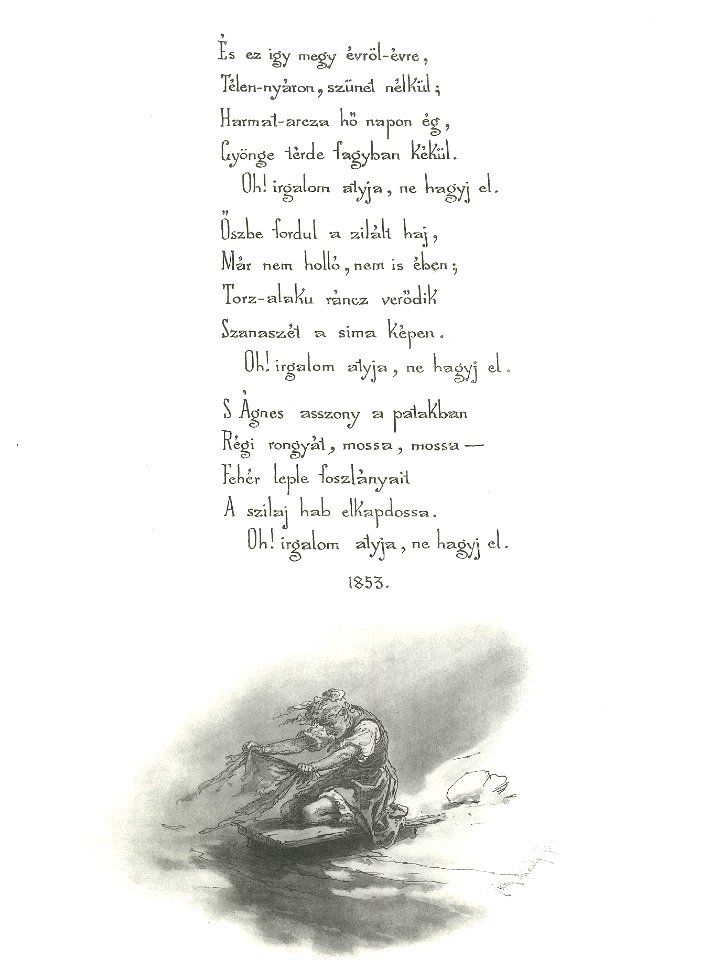 És ez igy megy évröl-évre,
Télen-nyáron, szünet nélkül;
Harmat-arcza hő napon ég,
Gyönge térde fagyban kékül.
Oh! irgalom atyja, ne hagyj el.
Őszbe fordul a zilált haj,
Már nem holló, nem is ében;
Torz-alaku ráncz verődik
Szanaszét a sima képen.
Oh! irgalom atyja, ne hagyj el.
S Ágnes asszony a patakban
Régi rongyát, mossa, mossa—
Fehér leple foszlányait
A szilaj hab elkapdossa.
Oh! irgalom atyja, ne hagyj el.
1853.